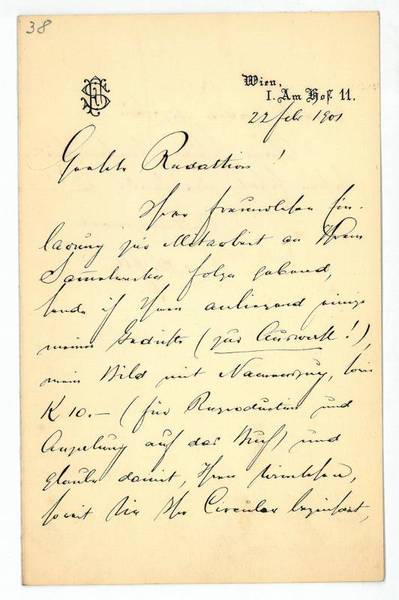 38
Wien,
I. Am Hof 11.
22 Feb 1901
Geehrte Redaktion!
Ihrer freundlichen Ein-
ladung zur Mitarbeit an Ihrem
Sammelwerke folge gebend,
sende ich Ihnen anliegend einige
meiner Gedichte (zur Auswahl!),
mein Bild mit Namenszug, sowie
K 10.– (für Reproduction und
auf das Buch) und
glaube damit, Ihren Wünschen,
soweit sie Ihr Circular